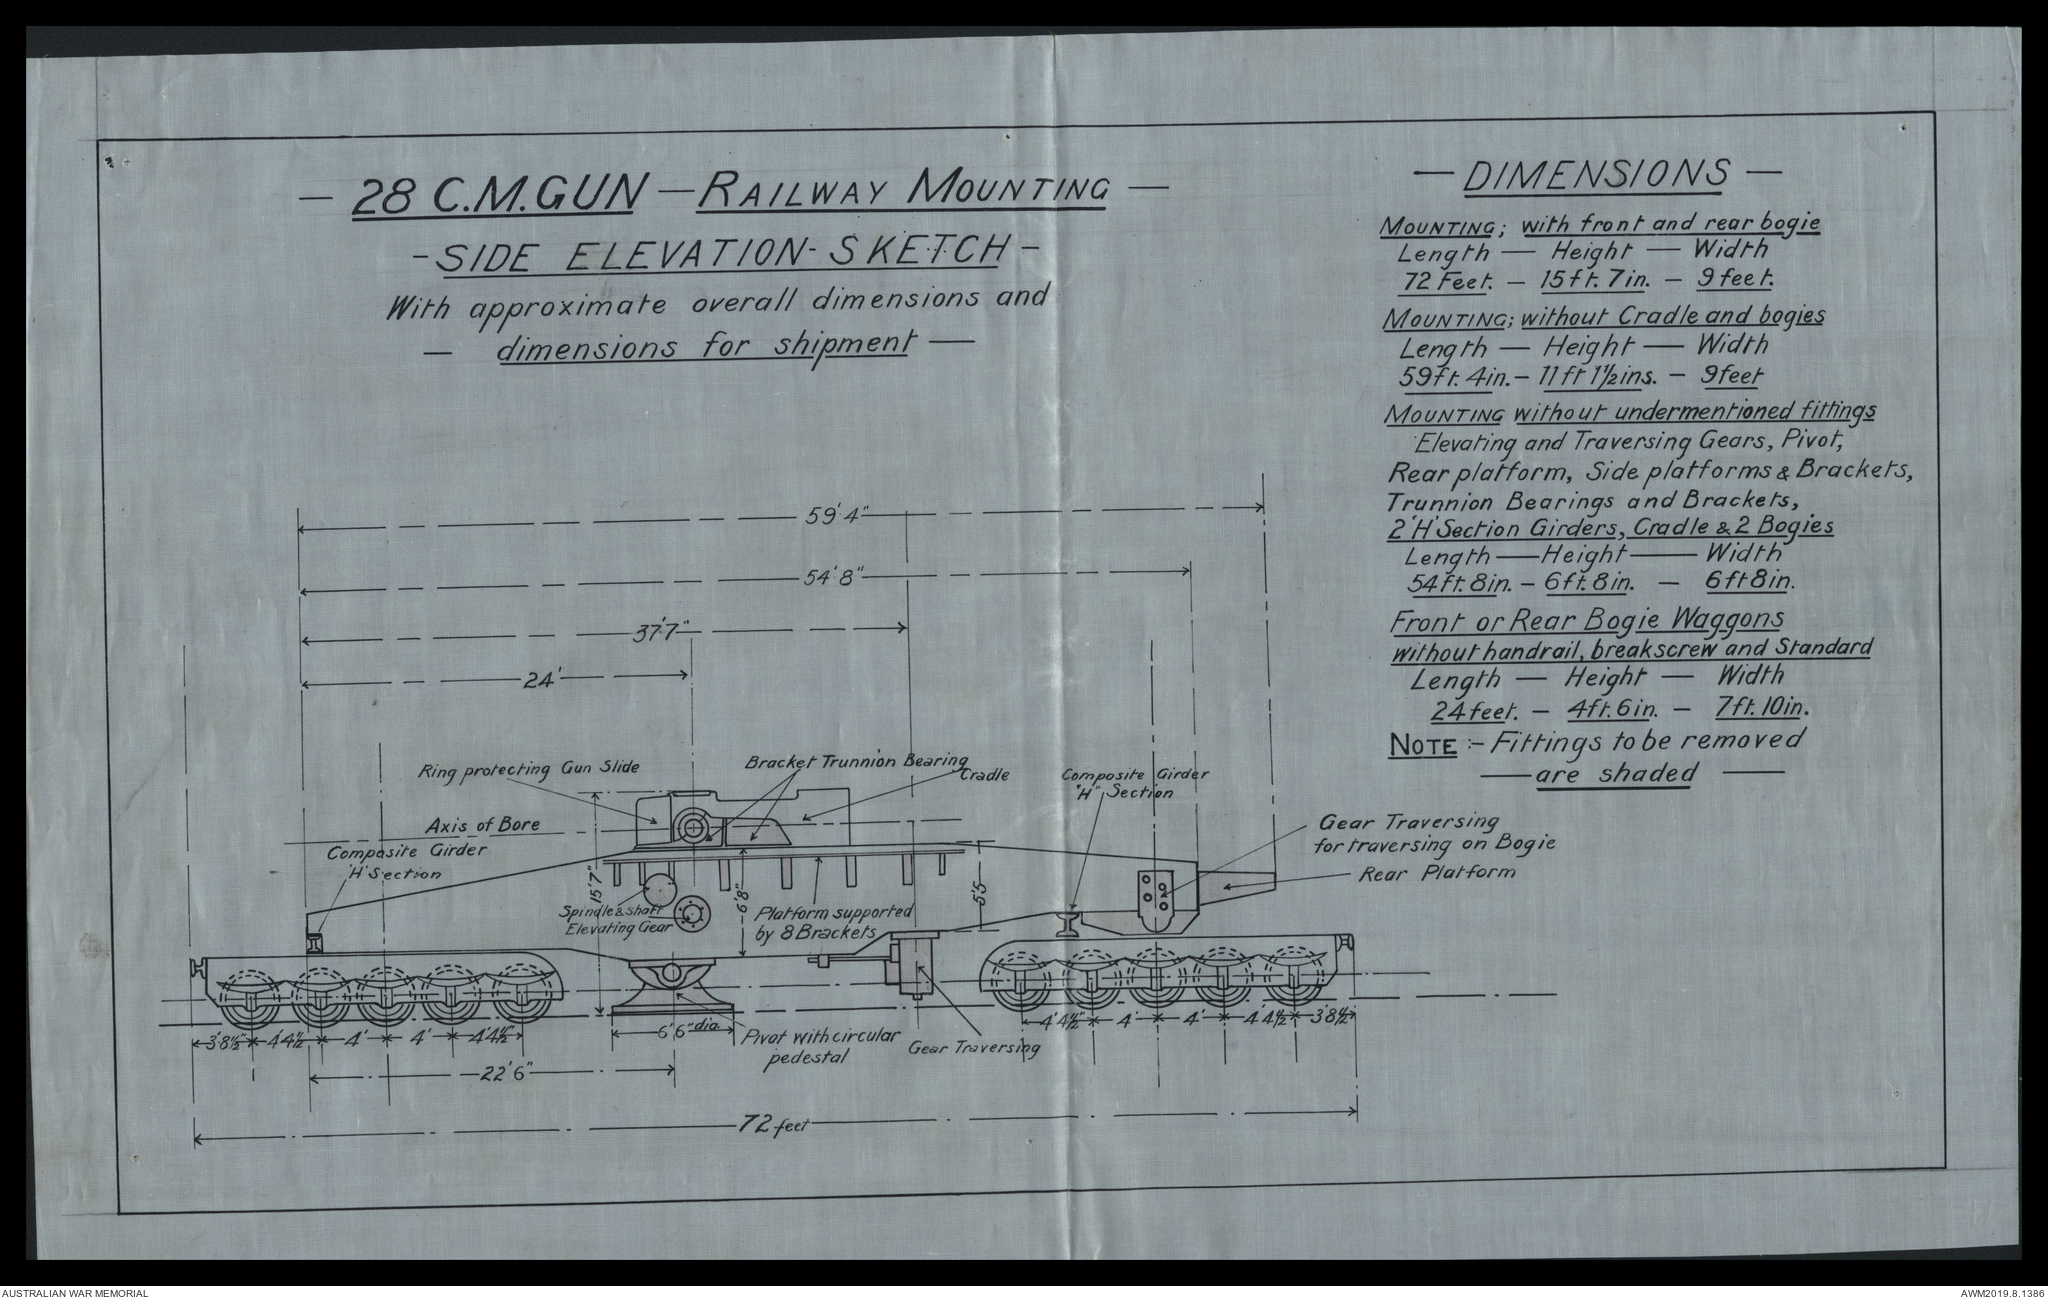 — 28 C.M. GUN — RAILWAY MOUNTING —
- SIDE ELEVATION - SKETCH -
With approximate overall dimensions and
— dimensions for shipment —
— DIMENSIONS —
MOUNTING; with front and rear bogie
Length — Height — Width
72 Feet. — 15 ft. 7 in. — 9 feet.
MOUNTING; without Cradle and bogies
Length — Height — Width
59 ft. 4 in. — 11 ft 1 1/2 ins. — 9 feet
MOUNTING without undermentioned fittings
Elevating and Traversing Gears, Pivot,
Rear platform, Side platforms & Brackets,
Trunnion Bearings and Brackets,
2 'H' Section Girders, Cradle & 2 Bogies
Length — Height — Width
54 ft. 8 in. — 6 ft. 8 in. — 6 ft 8 in.
Front or Rear Bogie Waggons
without handrail, breakscrew and Standard
Length — Height — Width
24 feet. — 4 ft. 6 in. — 7 ft. 10 in.
NOTE :- Fittings to be removed
— are shaded —
59' 4"
54' 8"
37' 7"
24'
Ring protecting Gun Slide
Bracket Trunnion Bearing
Cradle
Composite Girder
"H" Section
Axis of Bore
Composite Girder
'H' Section
Gear Traversing
for traversing on Bogie
Rear Platform
15' 7"
6' 8"
5' 5
Spindle & shaft
Elevating Gear
Platform supported
by 8 Brackets
3' 8 1/2" 4' 4 1/2 4' 4' 4' 4 1/2"
6' 6" dia.
Pivot with circular
pedestal
Gear Traversing
4' 4 1/2" 4' 4' 4' 4 1/2 3' 8 1/2"
22' 6"
72 feet
AUSTRALIAN WAR MEMORIAL
AWM2019.8.1386